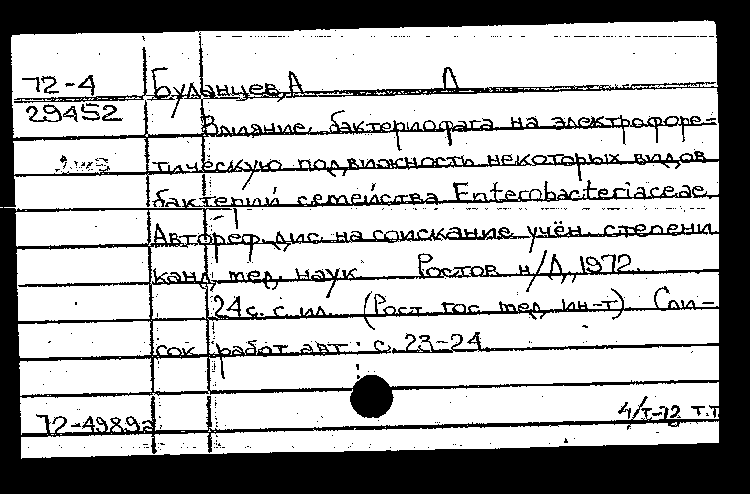 72-4 Буланцев, А Л
29452
Влияние бактериофага на электрофоре-
тическую подвижность некоторых видов
бактерий семейства Enterobacteriaceae.
Автореф. дис. на соискание учён. степени
канд. мед. наук. Ростов н/Д, 1972.
24 с. с ил. (Рост. гос. мед. ин-т). Спи-
сок работ авт.: с. 23-24.
72-4989а 4/т-72 т.т